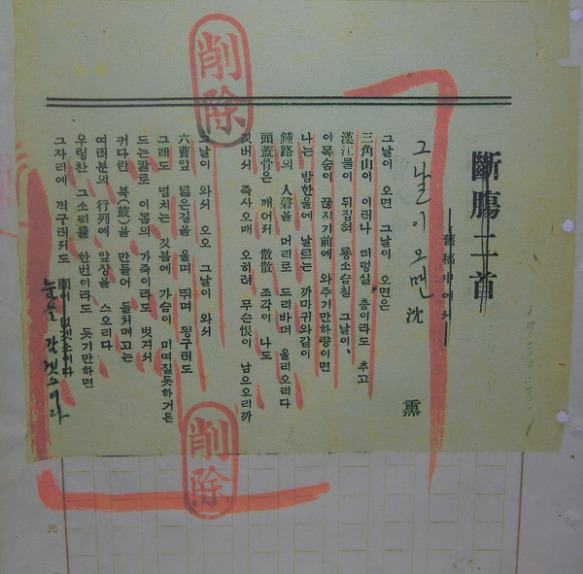 斷腸二首
舊稿中에서
그날이 오면 沈 熏
그날이 오면 그날이 오면은
三角山이 이러나 더덩실 춤이라도 추고
漢江물이 뒤집혀 룡소슴칠 그날이,
이목숨이 끊지기前에 와주기만하량이면
나는 밤한울에 날르는 까마귀와같이
鍾路의 人磬을 머리로 드리바더 울리오리다
頭蓋骨은 깨어저 散散 조각이 나도
깃버서 죽사오매 오히려 무슨恨이 남으오리까
그날이 와서 오오 그날이 와서
六曹앞 넓은길을 울며 뛰며 뒹구러도
그래도 넘치는 깃븜에 가슴이 미여질듯하거든
드는칼로 이몸의 가죽이라도 벗겨서
커다란 북(鼓)을 만들어 들처메고는
여러분의 行列에 앞장을 스오리다
우렁찬 그소리를 한번이라도 듯기만하면
그자리에 꺽구러저도 이다
눈을 감겟소이다
削除
削除